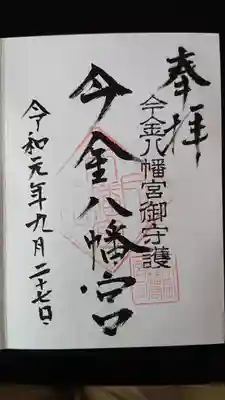 奉拝
今金八幡宮御守護
今金八幡宮
令和元年九月二十七日